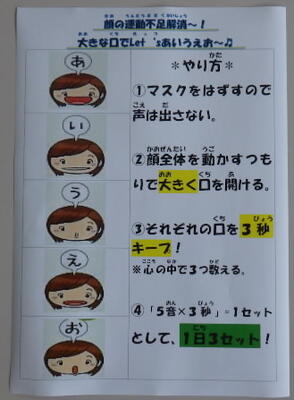 顔の運動不足解消〜！
大きな口でLet‘sあいうえお〜♫
あ
い
う
え
お
＊やり方＊
①マスクをはずすので
声は出さない。
②顔全体を動かすつも
りで大きく口を開ける。
③それぞれの口を３秒
キープ！
※心の中で３つ数える。
④「５音×３秒」＝１セット
として、１日３セット！